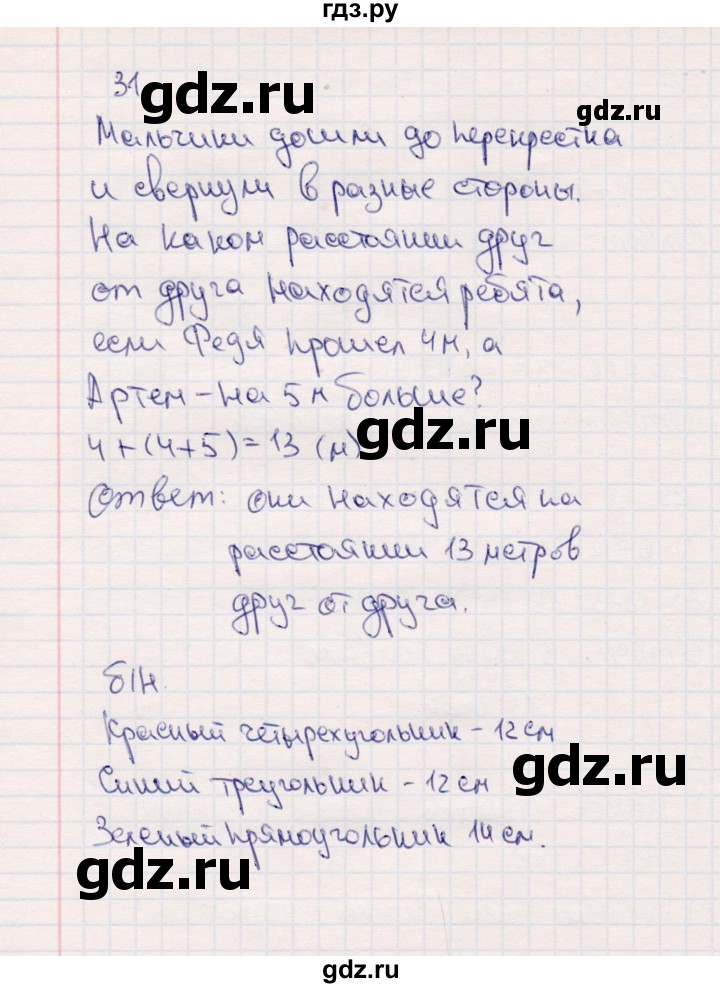 гдз.ру
31
gdz.ru
gdz.ru
Мальчики дошли до перекрестка
и свернули в разные стороны.
На каком расстоянии друг
от друга находятся ребята,
если Федя прошел 4 м, а
Артем – на 5 м больше?
4 + (4+5) = 13 (м)
gdz.ru
Ответ: они находятся на
расстоянии 13 метров
друг от друга.
б/н.
Красный четырехугольник – 12 см
gdz.ru
Синий треугольник – 12 см
Зеленый прямоугольник 14 см.
gdz.ru
gdz.ru